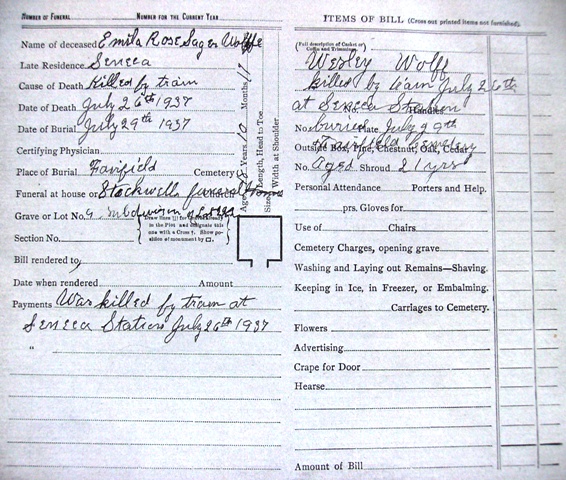 NUMBER OF FUNERAL NUMBER FOR THE CURRENT YEAR
Name of deceased Emila Rose Sager Wolffe
Late Residence Seneca
Cause of Death Killed by train
Date of Death July 26th 1937
Date of Burial July 29th 1937
Certifying Physician
Place of Burial Fairfield Cemetery
Funeral at house or Stockwells funeral Home
Grave or Lot No. 9. Subdivision of Lot
Draw lines in the Plot and designate this one with a Cross †. Show position of monument by □.
Section No.
Bill rendered to,
Date when rendered Amount
Payments Was killed by train at
Seneca Station July 26th 1937
"
Age Years 10 Months 17
Length, Head to Toe
Size Width at Shoulder
ITEMS OF BILL (Cross out printed items not furnished).
(Full description of Casket or Coffin and Trimmings)
Wesley Wolff
killed by train July 26th
at Seneca Station
No. Handles
No. buried Plate July 29th
Outside Box, Pine, Chestnut, Oak, Cedar
Fairfield Cemetery
No. Aged Shroud 21 yrs
Personal Attendance Porters and Help.
prs. Gloves for
Use of Chairs
Cemetery Charges, opening grave
Washing and Laying out Remains—Shaving.
Keeping in Ice, in Freezer, or Embalming.
Carriages to Cemetery.
Flowers
Advertising
Crape for Door
Hearse
Amount of Bill